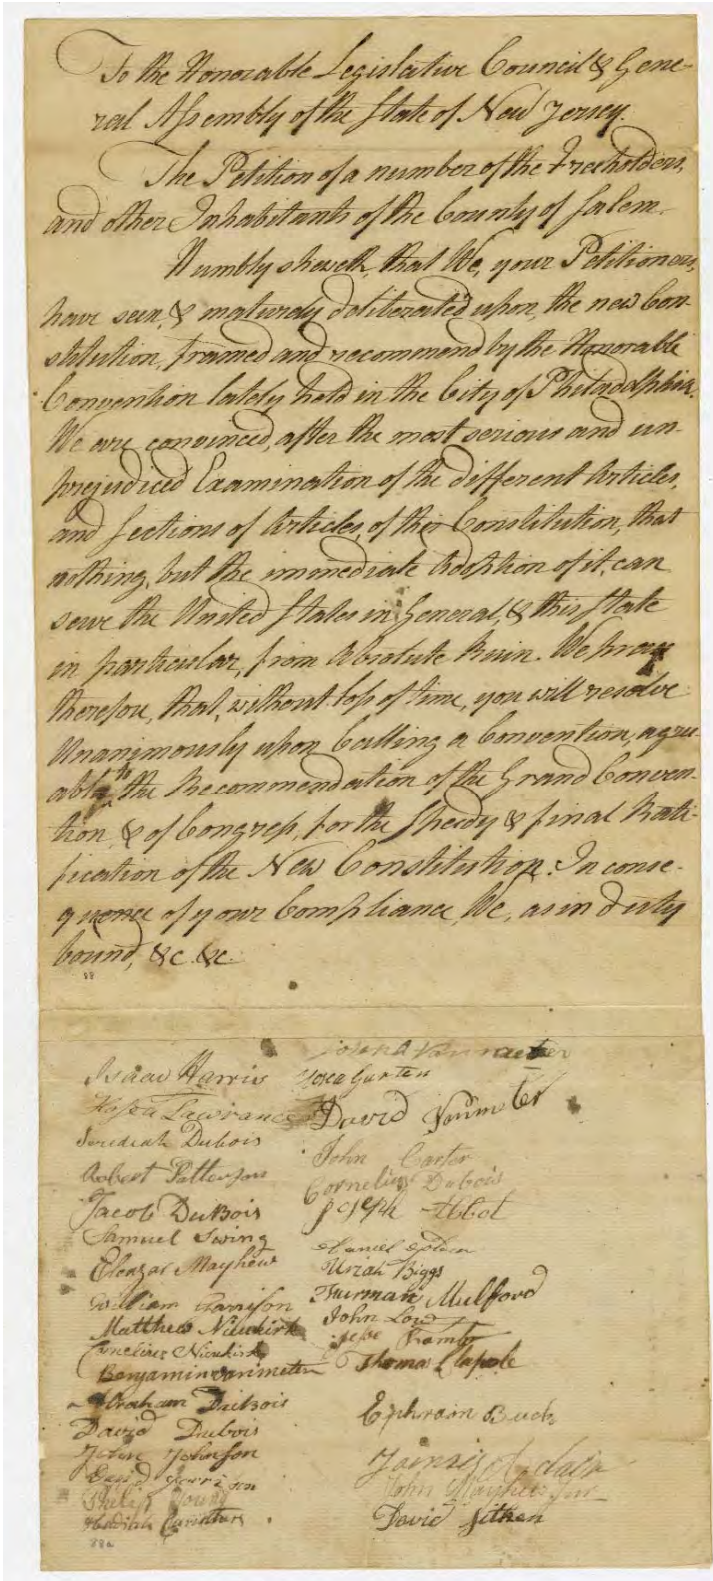 To the Honorable Legislative Council & Gene-
ral Assembly of the State of New Jersey.
The Petition of a number of the Freeholders,
and other Inhabitants of the County of Salem.
Humbly sheweth, that We, your Petitioners,
have seen, & maturely deliberated upon, the new Con-
stitution, framed and recommend by the Honorable
Convention lately held in the City of Philadelphia.
We are convinced, after the most serious and un-
prejudiced Examination of the different Articles,
and Sections of Articles, of this Constitution, that
nothing, but the immediate Adoption of it, can
save the United States in General, & this State
in particular, from Absolute Ruin. We pray
therefore, that, without loss of time, you will resolve
Unanimously upon Calling a Convention, agree-
able to the Recommendation of the Grand Conven-
tion & of Congress, for the Speedy & final Rati-
fication of the New Constitution. In conse-
quence of your Compliance, We, as in duty
bound, &c. &c.
88
Isaac Harris
Lawrance
Jerediah Dubois
Robert Patterson
Jacob DuBois
Samuel Swing
Eleazar Mayhew
William Garrison
Matthew Nieukirk
Cornelius Nieukirk
Benjamin vanimeter
Abraham DuBois
David Dubois
John Johnson
David
Philip Young
88a
Joseph Vanmeeter
David Vanmeter
John Carter
Cornelius Dubois
Joseph Abbot
Uriah Biggs
Fuurman Mulford
John Low
Thomas Clapole
Ephraim Buck
John Mayhew Jur
David Sithen